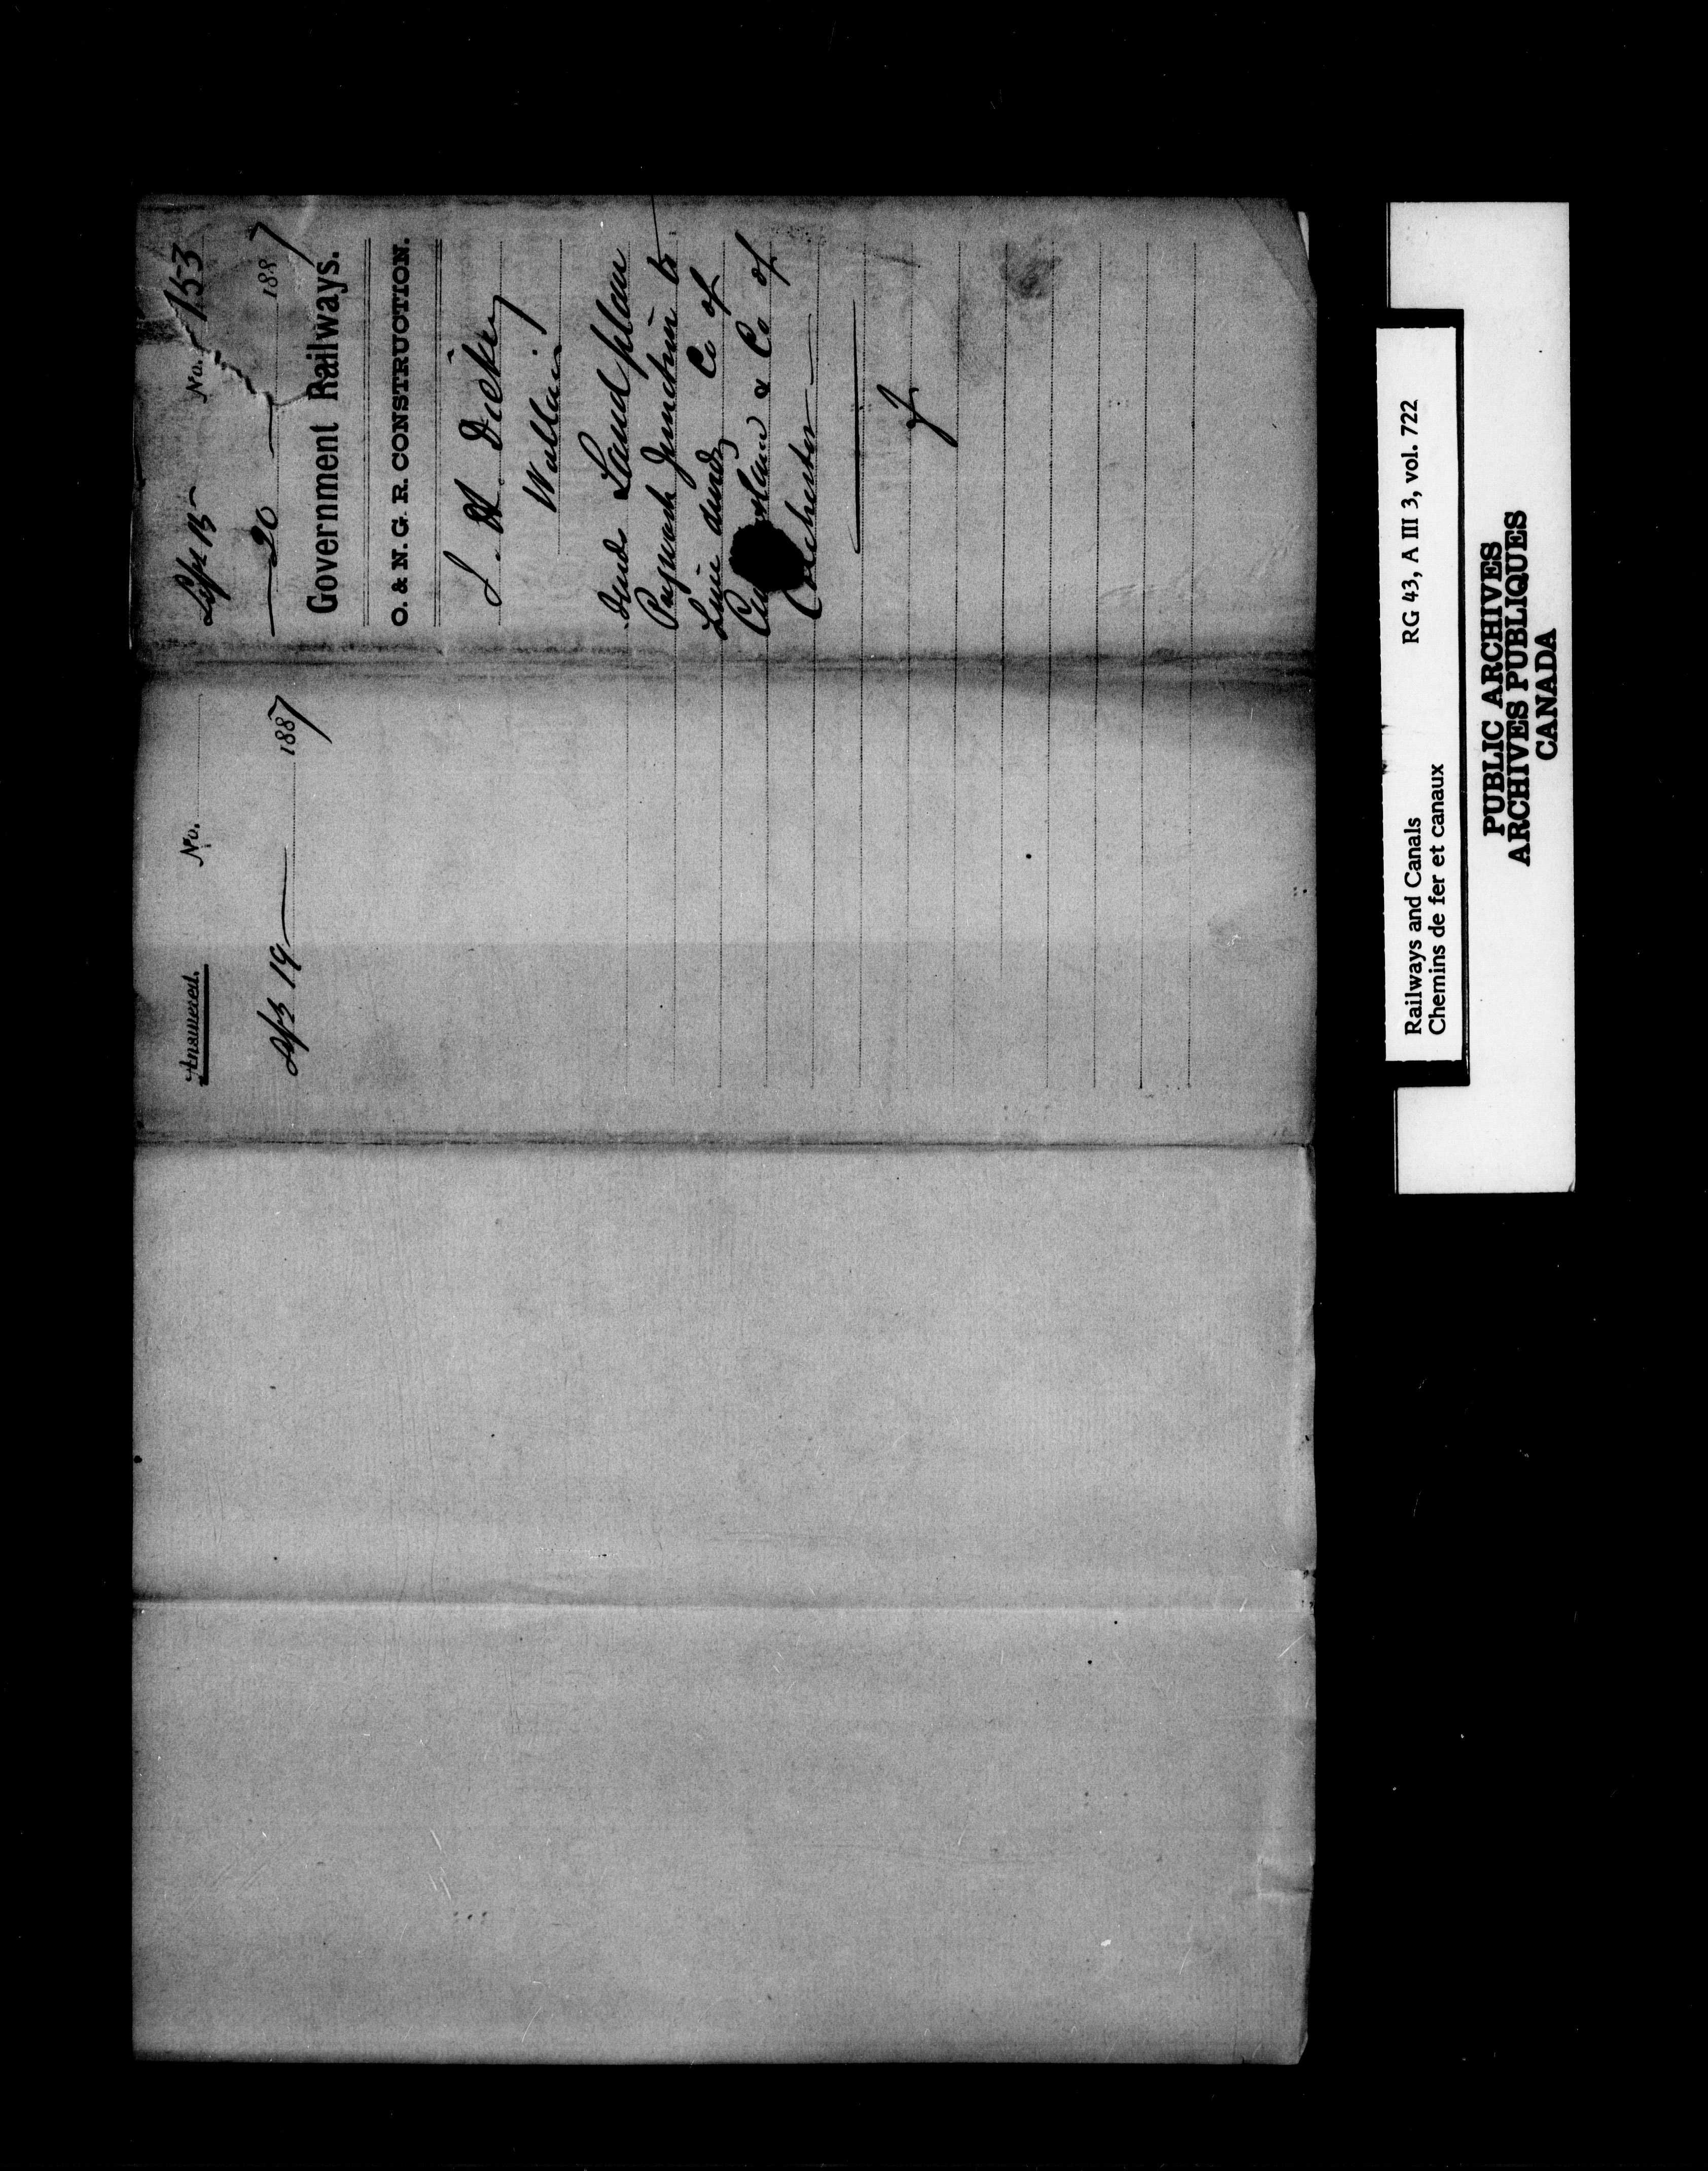 Sept 15 No. 153
20 1887
Government Railways.
O. & N. G. R. CONSTRUCTION.
J. H. Dickey
Wallace
Sends Land plan
Pugwash Junction to
Line divdg Co of
Cumberland & Co of
Colchester
Answered. No.
Sept 19 1887
Railways and Canals RG 43, A III 3, vol. 722
Chemins de fer et canaux
PUBLIC ARCHIVES
ARCHIVES PUBLIQUES
CANADA